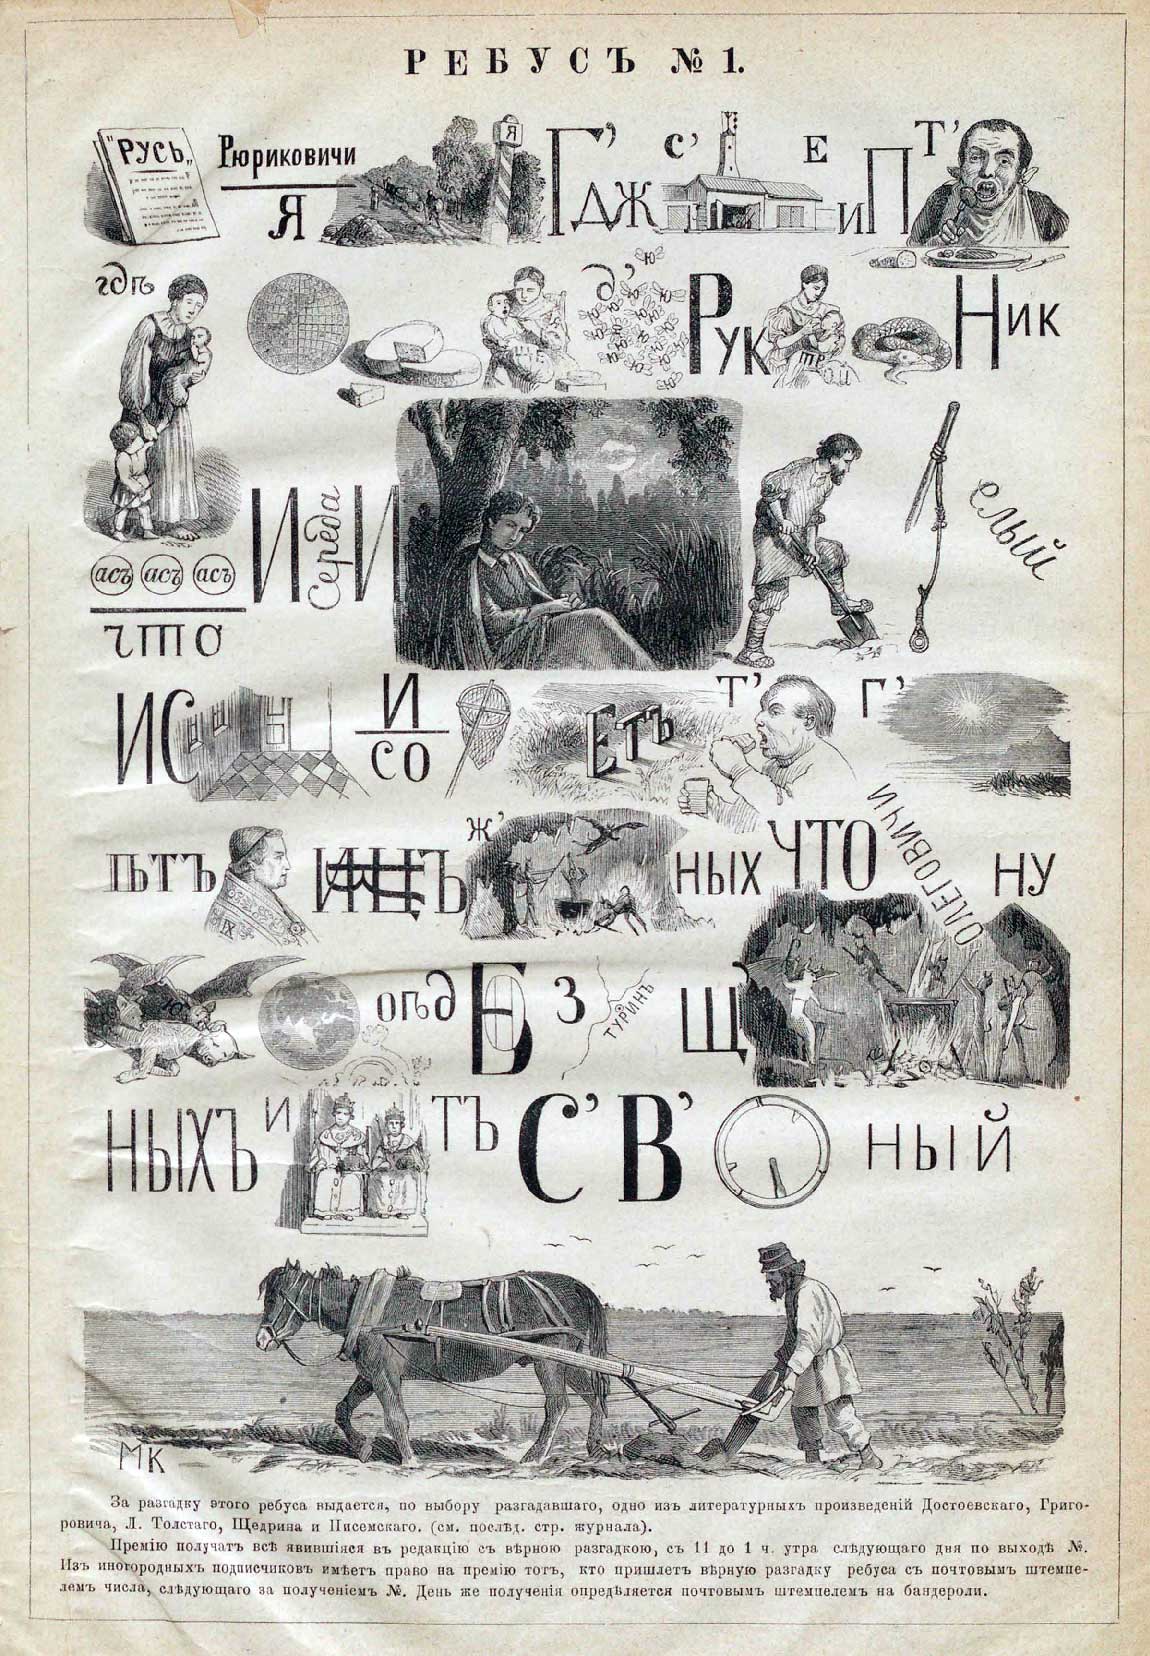 РЕБУСЪ № 1.
"РУСЬ„
Рюриковичи
Я
Я
Г'ДЖ
С'
Е
ИП
Т'
гдѣ
д'
Ю
РУК
тр
НИК
асъ асъ асъ
что
И Середа И
елый
ИС
И
СО
Етъ
Т'
Г'
ПѢТЪ
IX
ИНЦЪ
Ж'
НЫХ
ЧТО
ОЛЕГОВИЧИ
НУ
ОПѢД
Б
З
ТУРИНЪ
Щ'
НЫХЪ
И
ТЬ
С'
В'
НЫЙ
МК
За разгадку этого ребуса выдается, по выбору разгадавшаго, одно изъ литературныхъ произведеній Достоевскаго, Григо-
ровича, Л. Толстаго, Щедрина и Писемскаго. (см. послѣд. стр. журнала).
Премію получатъ всѣ явившіяся въ редакцію съ вѣрною разгадкою, съ 11 до 1 ч. утра слѣдующаго дня по выходѣ №.
Изъ иногородныхъ подписчиковъ имѣетъ право на премію тотъ, кто пришлетъ вѣрную разгадку ребуса съ почтовымъ штемпе-
лемъ числа, слѣдующаго за полученіемъ №. День же полученія опредѣляется почтовымъ штемпелемъ на бандероли.